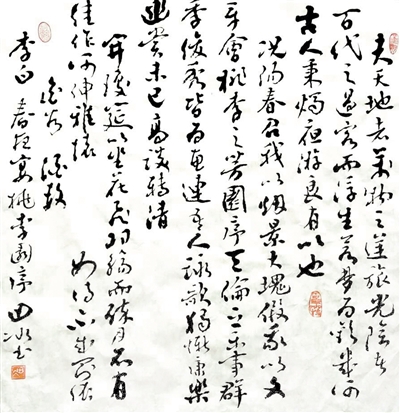 夫天地者萬物之逆旅光陰者
百代之過客而浮生若夢為歡幾何
古人秉燭夜游良有以也
況陽春召我以煙景大塊假我以文
章會桃李之芳園序天倫之樂事群
季俊秀皆為惠連吾人詠歌獨慚康樂
幽賞未已高談轉清
開瓊筵以坐花飛羽觴而醉月不有
佳作何伸雅懷 如詩不成罰依
金谷酒數
李白春夜宴桃李園序 田冰書